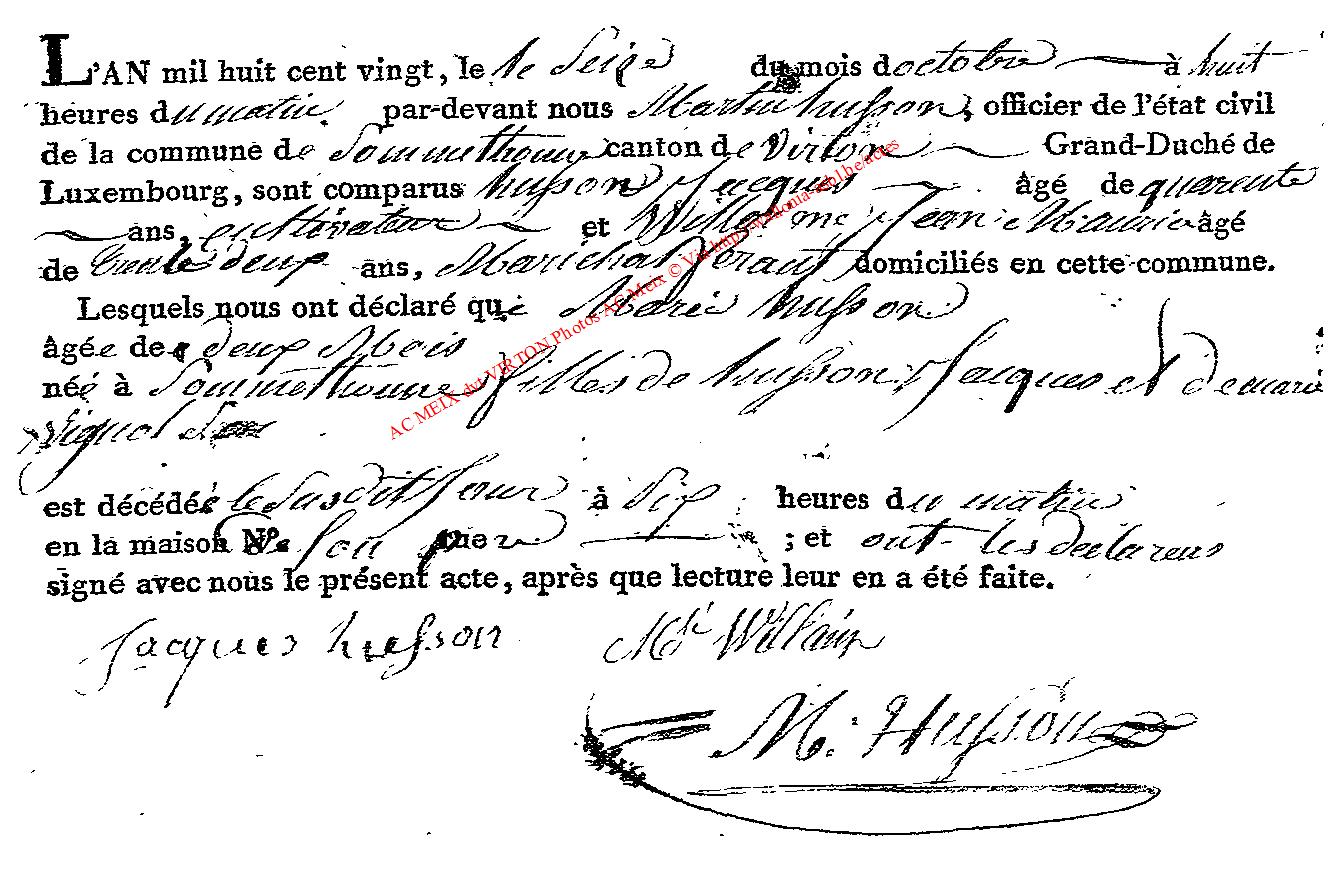 L'AN mil huit cent vingt, le le Seize du mois doctobre à huit
heures du matin. par-devant nous Martin husson, officier de l'état civil
de la commune de Sommethonne canton de Virton Grand-Duché de
Luxembourg, sont comparus husson Jacques âgé de quarente
ans, cultivateur et Jean âgé
de trente deux ans, Marichal ferant domiciliés en cette commune.
Lesquels nous ont déclaré que Marie husson
âgée de deux Mois
née à Sommethonne filles de husson Jacques et de marie
est décédée le susdit Jour à Six heures du matin
en la maison N° rue ; et ont les déclarens
signé avec nous le présent acte, après que lecture leur en a été faite.
Jacques husson
M. Husson
AC MEIX dvt VIRTON Photos AC Meix © Via